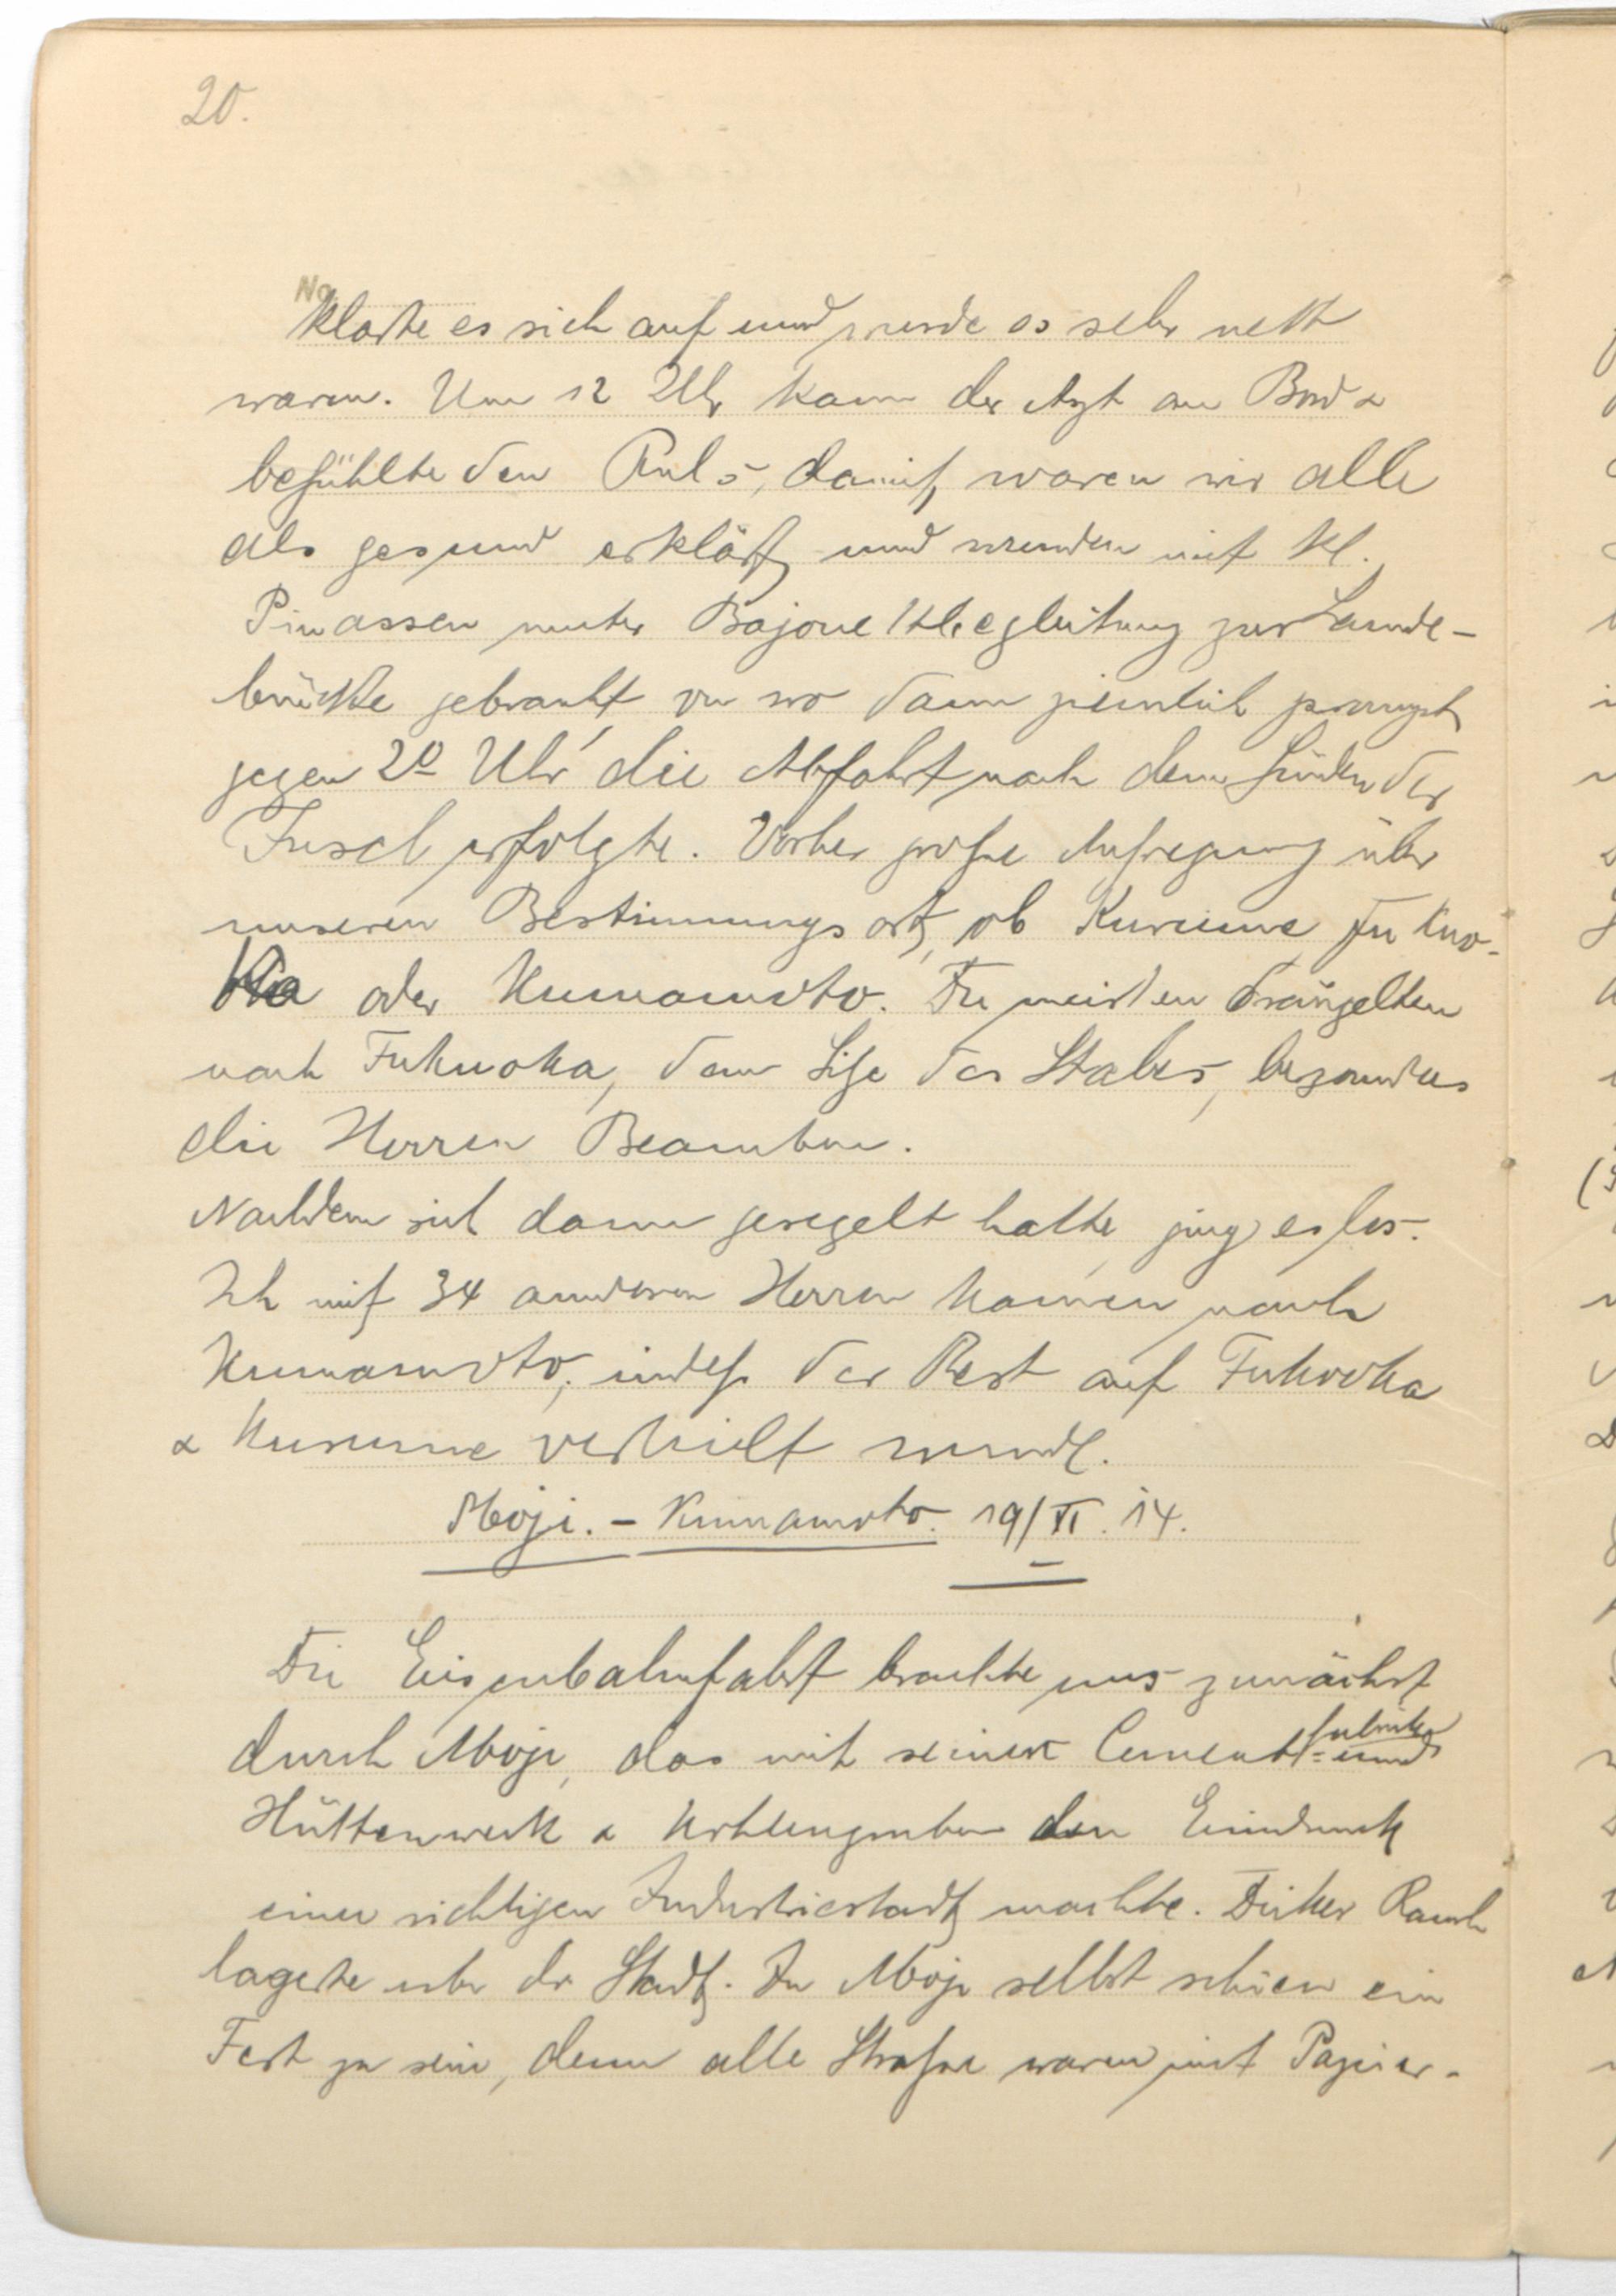 20.
No
klarte es sich auf und wurde es sehr nett
waren. Um 12 Uhr kam der Arzt an Bord &
befühlte den Puls, damit waren wir alle
als gesund erklärt und wurden mit kl.
Pinassen unter Bajonettbegleitung zur Lande-
brücke gebracht von wo dann ziemlich prompt
gegen 2º Uhr die Abfahrt nach dem Süden der
Insel erfolgte. Vorher große Aufregung über
unseren Bestimmungsort, ob Kurume Fukuo-
ka oder Kumamoto. Die meisten drängelten
nach Fukuoka, dem Sitze des Stabes, besonders
die Herren Beamten.
Nachdem sich dann geregelt hatte, ging es los.
Ich mit 34 anderen Herren kamen nach
Kumamoto, indeß der Rest auf Fukuoka
& Kurume verteilt wurde.
Moji. - Kumamoto. 19/XI. 14.
Die Eisenbahnfahrt brachte uns zunächst
durch Moji, das mit seiner Cementfabrik und
Hüttenwerk & Kohlengruben den Eindruck
einer richtigen Industriestadt machte. Dicker Rauch
lagerte über der Stadt. In Moji selbst schien ein
Fest zu sein, denn alle Straßen waren mit Papier-